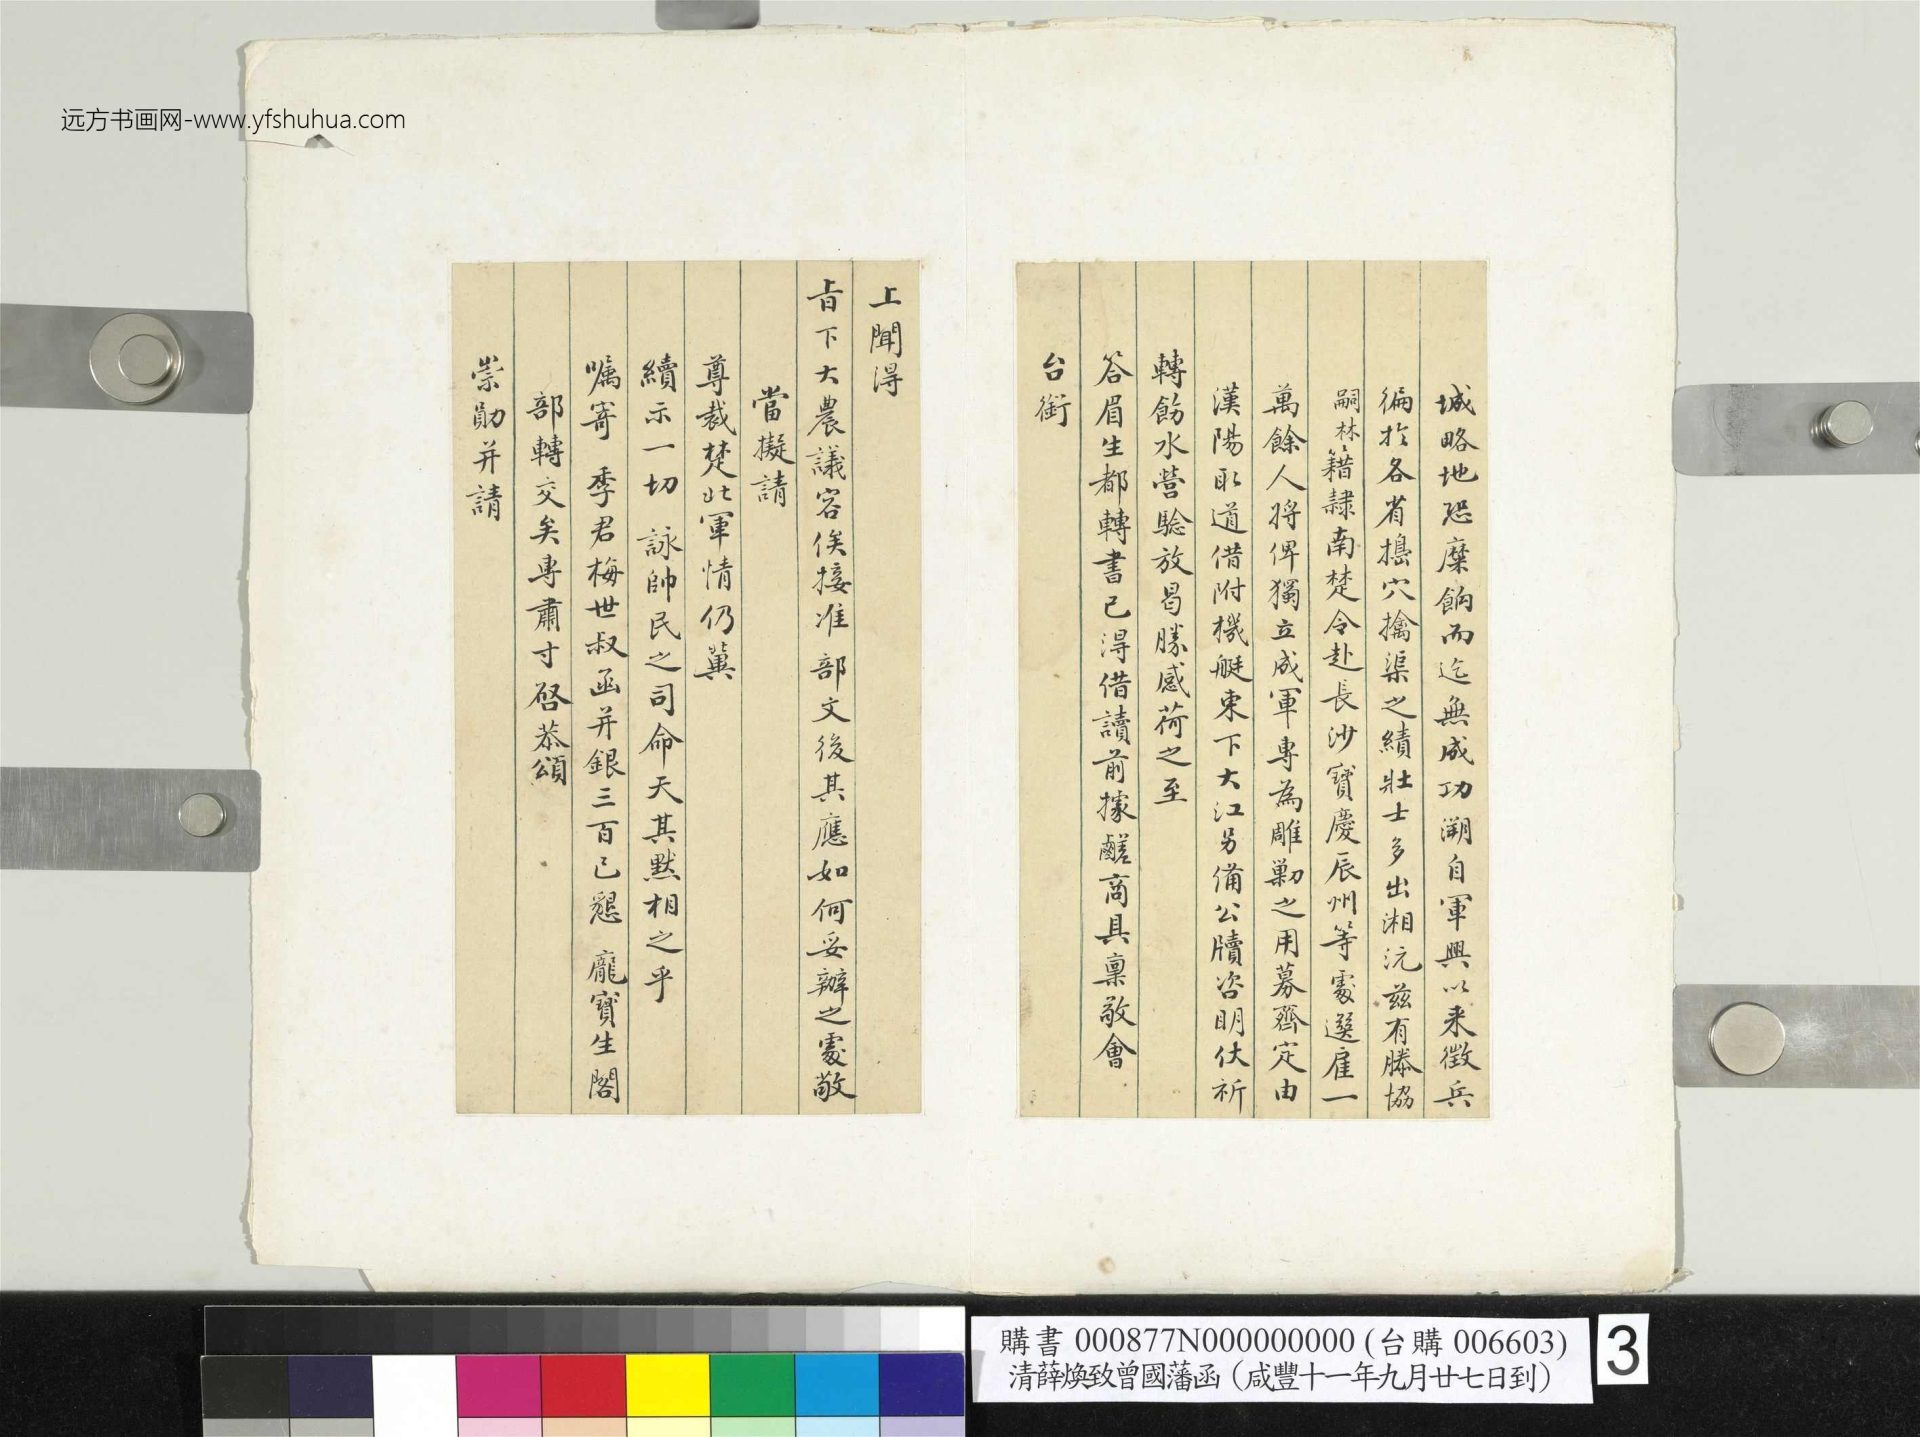 远方书画网-www.yfshuhua.com
城略地恐糜餉而迄無成功溯自軍興以来徵兵
徧於各省搗穴擒渠之績壯士多出湘沅茲有滕協
嗣林籍隷南楚令赴長沙寶慶辰州等處選雇一
萬餘人將俾獨立成軍專為雕剿之用募齊定由
漢陽取道借附機艇東下大江另備公牘咨明伏祈
轉飭水營騐放曷勝感荷之至
答眉生都轉書已得借讀前據鹺商具稟敬會
台銜
上聞得
旨下大農議容俟接准部文後其應如何妥辦之處敬
當擬請
尊裁楚北軍情仍冀
續示一切詠帥民之司命天其默相之乎
嘱寄季君梅世叔函并銀三百已懇龐寶生閣
部轉交矣專肅寸啓恭頌
崇勛并請
購書 000877N000000000 (台購 006603)
清薛煥致曾國藩函（咸豐十一年九月廿七日到）
3